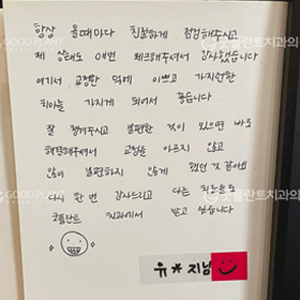 항상 올때마다 친절하게 점검해주시고
제 상태도 매번 체크해주셔서 감사했습니다
여기서 교정한 덕에 이쁘고 가지런한
치아를 가지게 되어서 좋습니다
잘 챙겨주시고 불편한 것이 있으면 바로
해결해주셔서 교정을 아프지 않고
많이 불편하지 않게 했던 것 같아요
다시 한 번 감사드리고 다른 진료도
굿플란트 치과에서 받고 싶습니다
유*지님
GOOD PLANT
굿플란트치과의